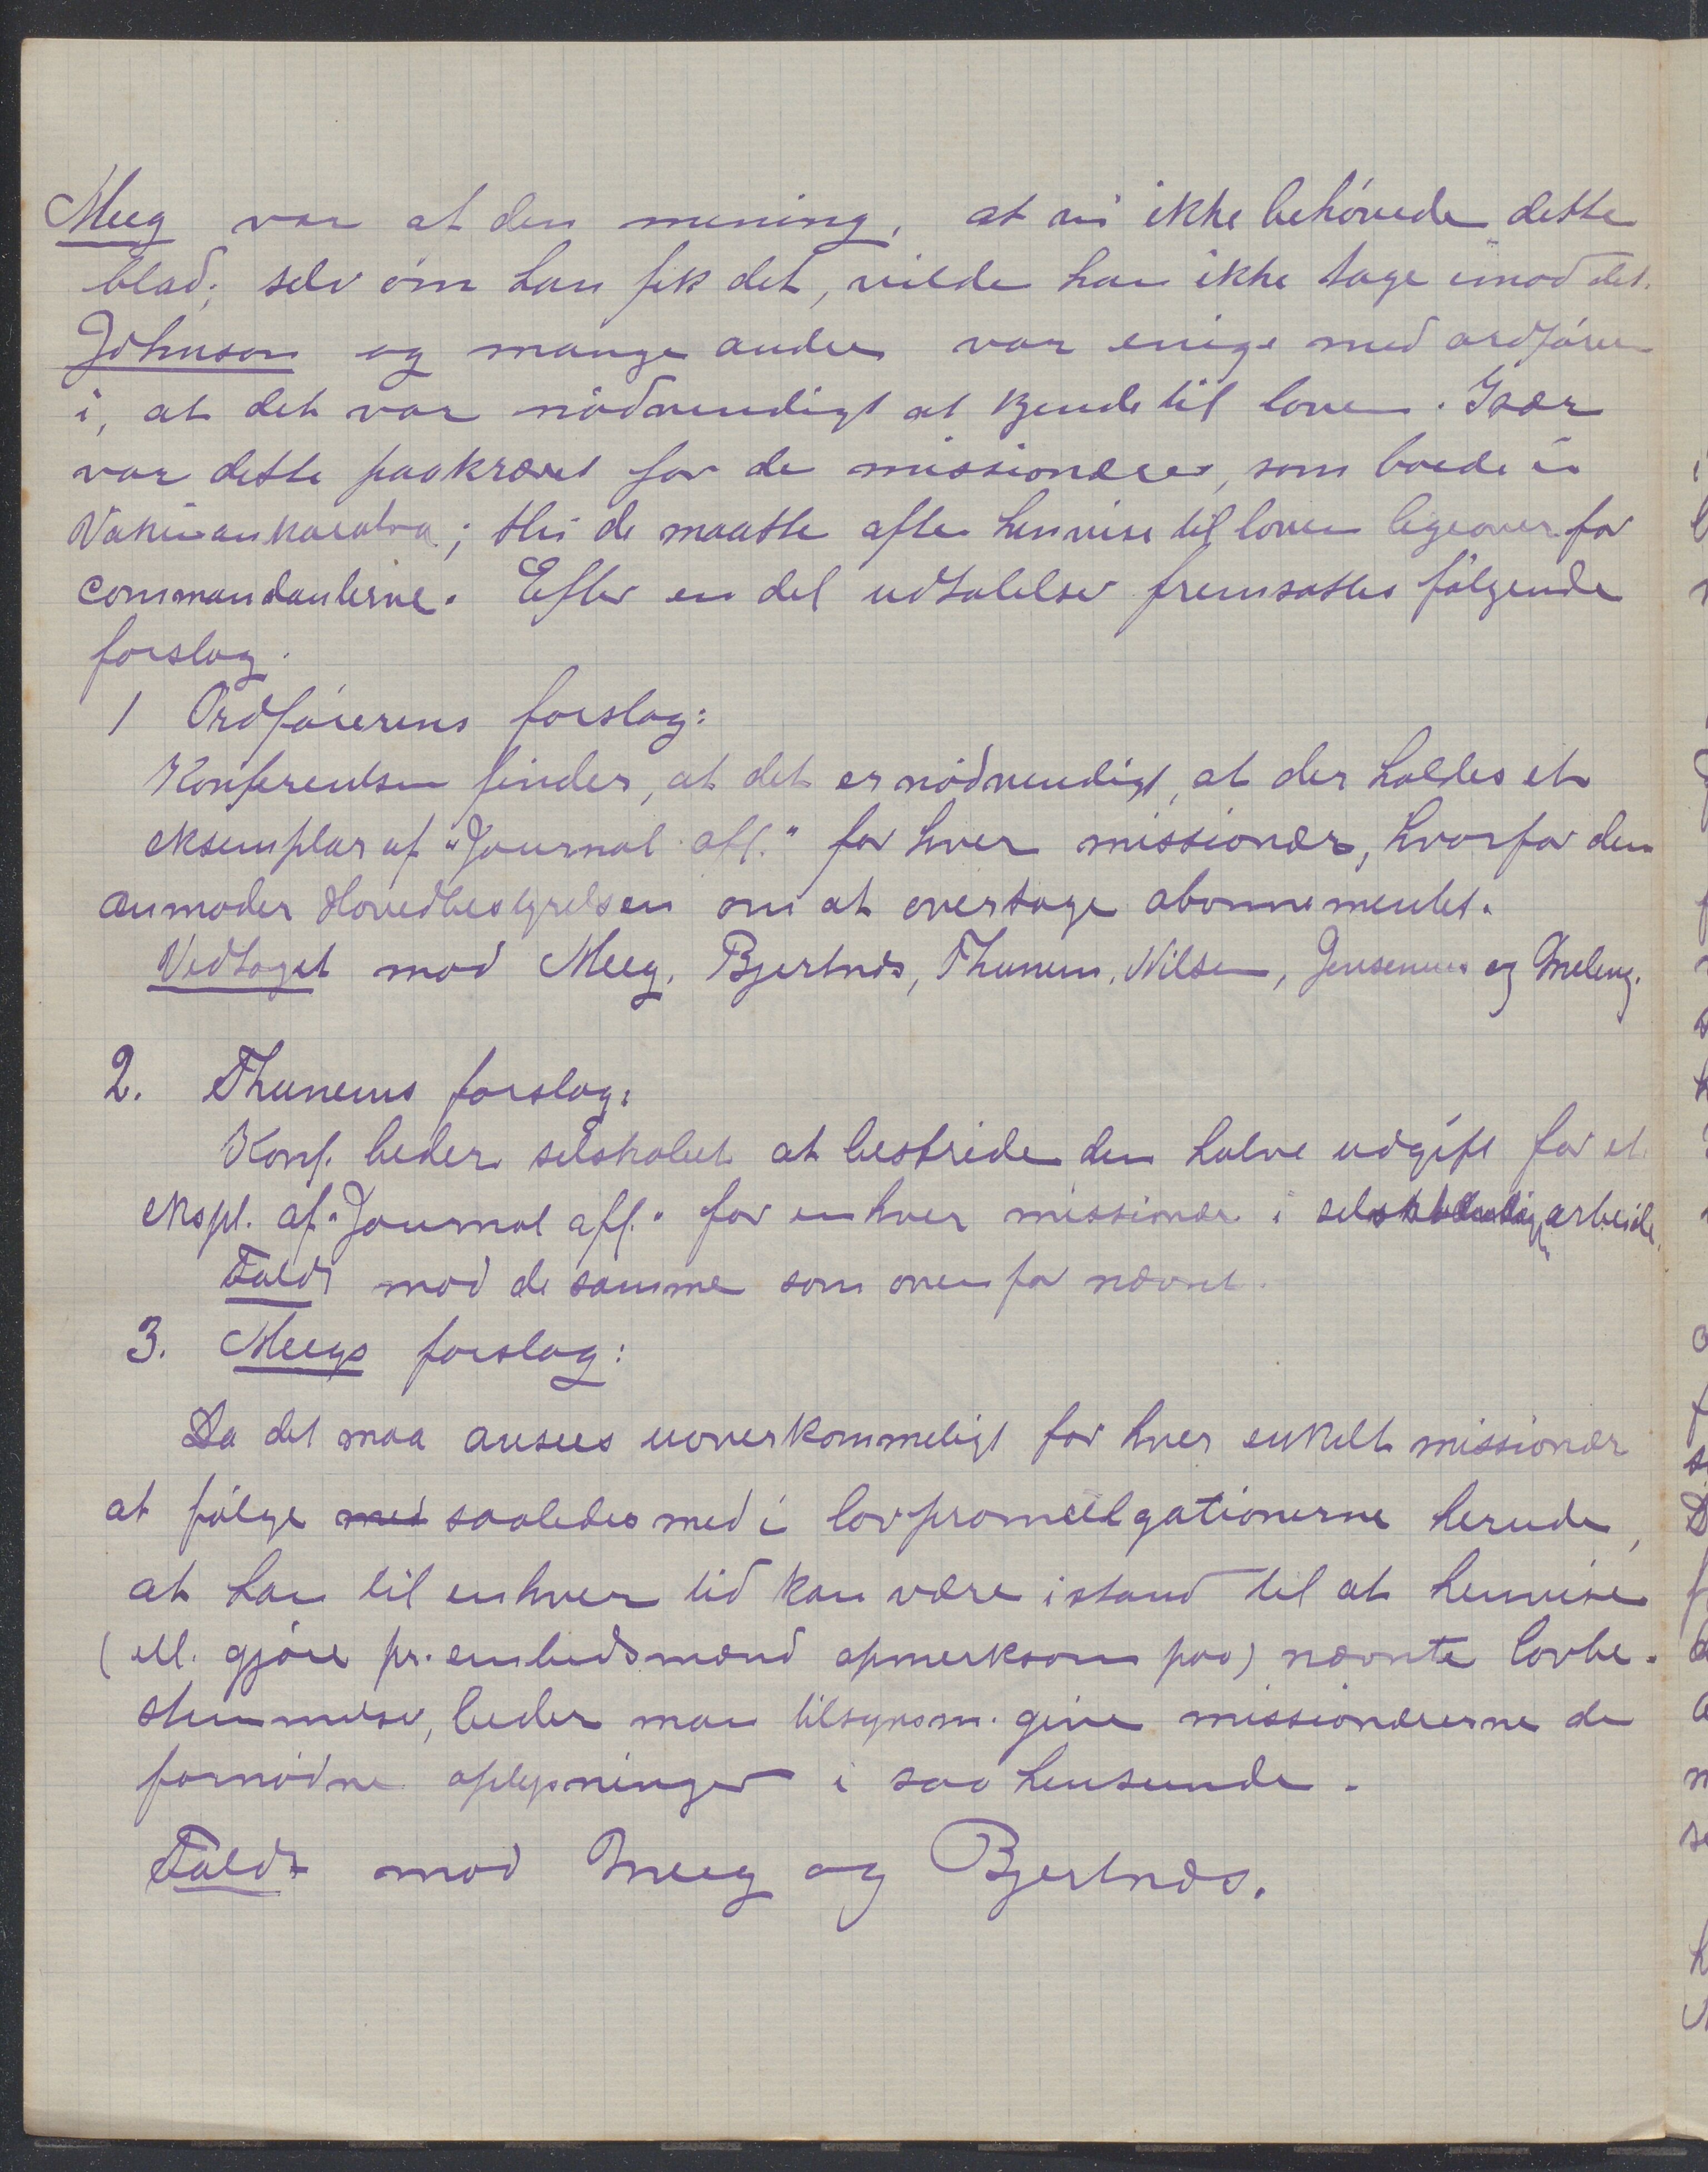 Meeg var at den mening, at vi ikke behøvede dette
blad; selv om han fik det, vilde han ikke tage imod det.
Johnson og mange andre var enige med ordfører
i, at det var nødvendigt at kjende til loven. Især
var dette paakrævet for de missionærer, som boede i
Vakinankaratra; thi de maatte ofte henvise til loven ligeoverfor
commandanterne. Efter en del udtalelser fremsattes følgende
forslag.
1 Ordførerens forslag:
Konferentsen finder, at det er nødvendigt, at der holdes et
eksemplar af "Journal off." for hver missionær, hvorfor den
anmoder Hovedbestyrelsen om at overtage abonnementet.
Vedtaget mod Meeg, Bjertnæs, Thunem, Nilsen, Jensenius og Meling.
2. Thunems forslag:
Konf. beder selskabet at bestride den halve udgift for et
ekspl. af "Journal off." for enhver missionær i selvstændig arbeide.
Faldt mod de samme som ovenfor nævnt.
3. Meegs forslag:
Da det maa ansees uoverkommeligt for hver enkelt missionær
at følge med saaledes med i lovpromulgationerne herude,
at han til enhver tid kan være istand til at henvise
(ell. gjøre pr. embedsmænd opmerksom paa) nævnte lovbe-
stemmelser, beder man tilsynsm. give missionærerne de
fornødne oplysninger i saa henseende.
Faldt mod Meeg og Bjertnæs.